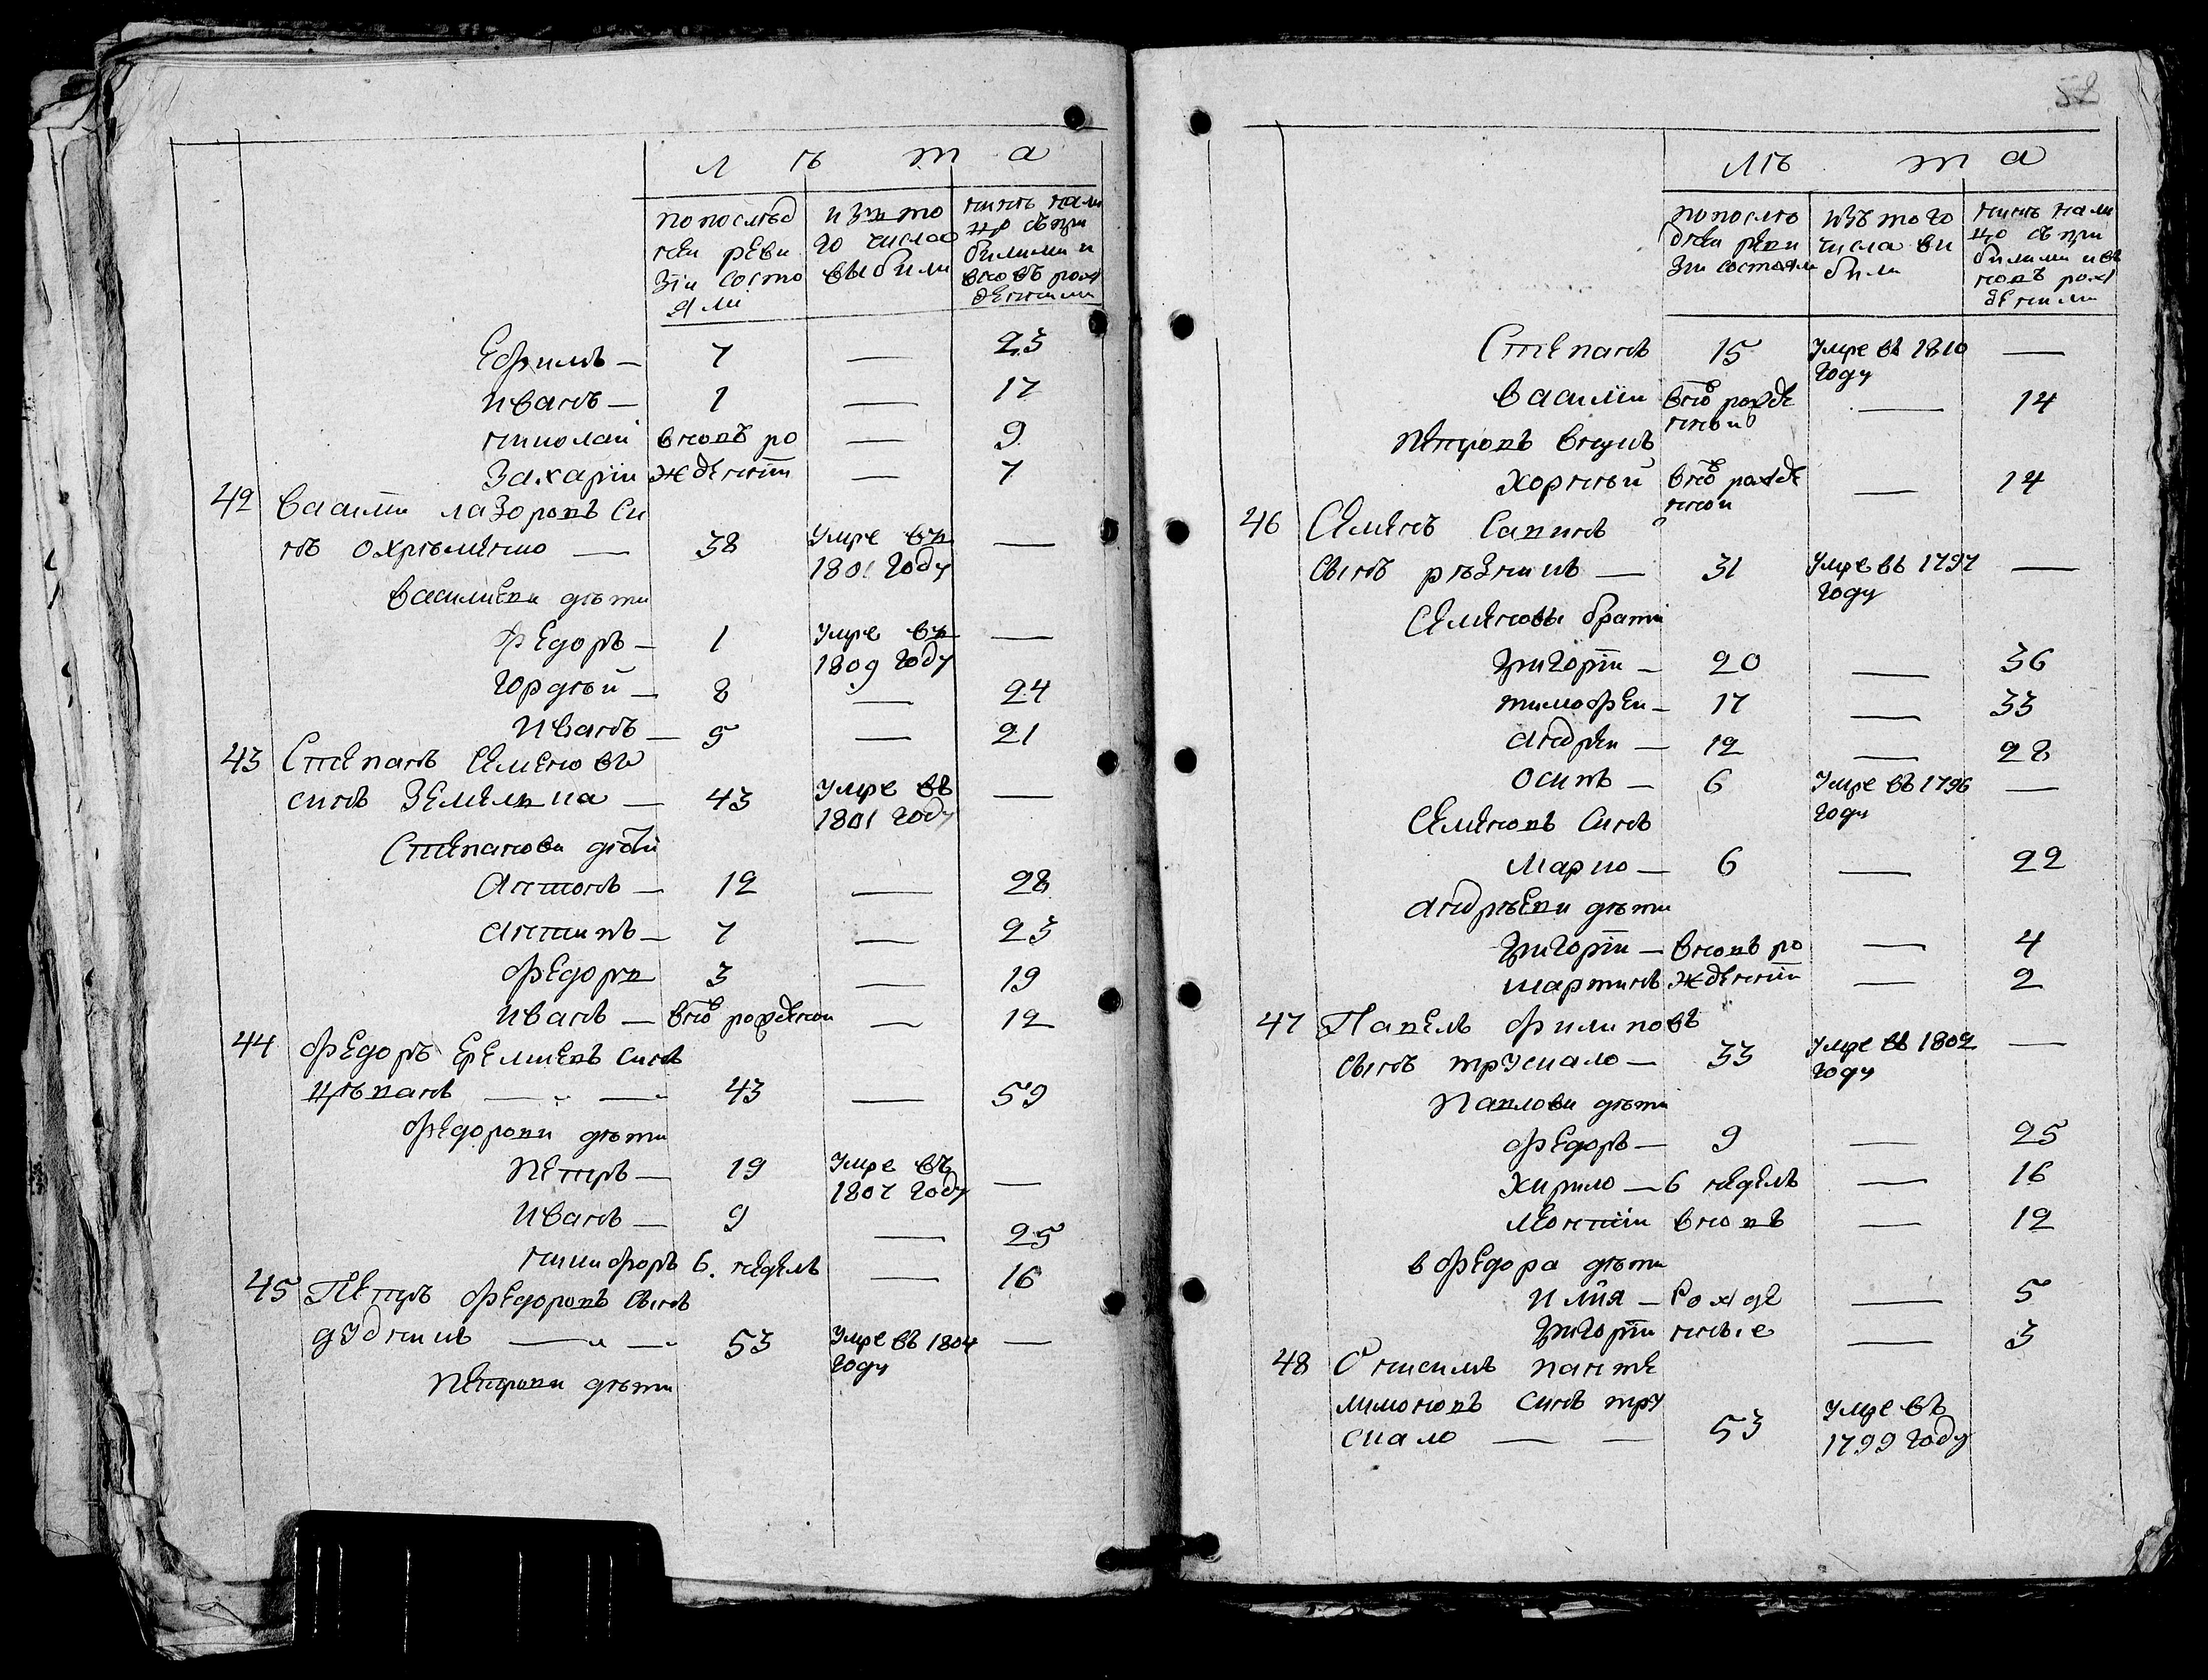 Л ѣ т а
попослѣд изъ то нинѣ нали
неи реви го числа цо съ при
зіи состо выбили билими и
яли вновь рож
деними
Ефимъ — 7 — 23
Иванъ — 1 — 17
Николай вновъ ро — 9
Захаріи жденніи — 7
42 Василіи Лазоровъ си
нъ Охрѣменко — 38 Умре въ —
1801 году
Василиеви дѣти
Федоръ — 1 Умре въ —
1809 году
Гордѣй — 8 — 24
Иванъ — 5 — 21
43 Степанъ Семеновъ
синъ Земелька — 43 Умре въ —
1801 году
Степанови дѣти
Антонъ — 12 — 28
Антипъ — 7 — 23
Федоръ 3 — 19
Иванъ — внов рожденои — 12
44 Федоръ Еремиевъ синъ
Цѣпанъ — 43 — 59
Федорови дѣти
Петръ — 19 Умре въ —
1807 году
Иванъ — 9 — 25
Никифоръ 6. недель — 16
45 Петръ Федоровъ сынъ
Дудникъ — 53 Умре въ 1804 —
году
Петрови дѣти
58
Лѣ т а
попослѣ изъ того нинѣ нали
днеи реви числа ви цо съ при
зіи состояли били билими и вь
новъ рож
деними
Степанъ 15 Умре въ 1810 —
году
Василіи внов рожде — 14
нной
Петровъ внукъ
Корней внов рожде — 14
нной
46 Семенъ Савинъ
сынъ Рѣзникъ — 31 Умре въ 1797 —
году
Семеновы братіи
Григоріи — 20 — 36
Тимофеи — 17 — 33
Андреи — 12 — 28
Осипъ — 6 Умре въ 1796 —
году
Семеновъ синъ
Марко — 6 — 22
Андрѣеви дѣти
Григоріи — вновъ ро — 4
Мартинъ жденніи — 2
47 Павелъ Филиповъ
сынъ Трускало — 33 Умре въ 1802 —
году
Павлови дѣти
Федоръ — 9 — 25
Кирило — 6 недель — 16
Леонтіи вновъ — 12
в Федора дѣти
Илия — рожде — 5
Григоріи нные — 3
48 Онисимъ Панте
лимоновъ синъ Тру
скало — 53 Умре въ
1799 году